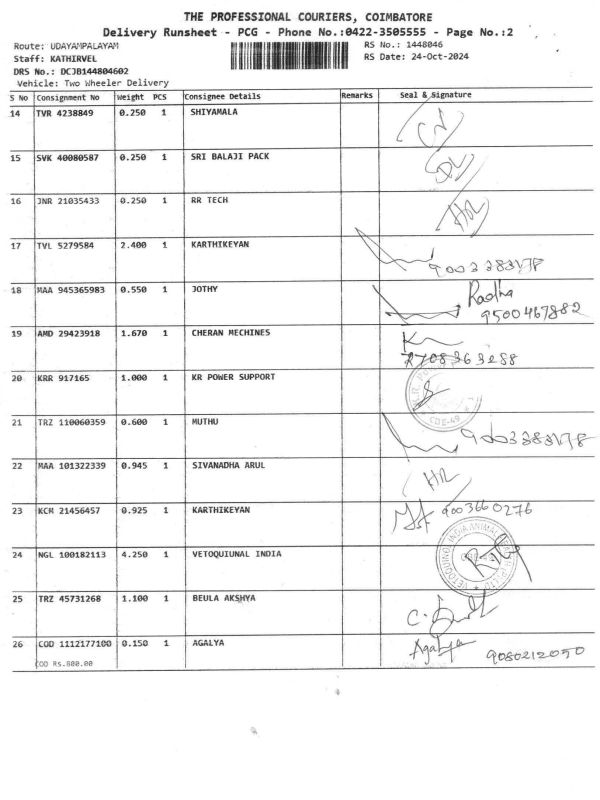 THE PROFESSIONAL COURIERS, COIMBATORE
Delivery Runsheet - PCG - Phone No.:0422-3505555 - Page No.:2
Route: UDAYAMPALAYAM
RS No.: 1448046
Staff: KATHIRVEL
RS Date: 24-Oct-2024
DRS No.: DCJB144804602
Vehicle: Two Wheeler Delivery
S No Consignment No Weight PCS Consignee Details Remarks Seal & Signature
14 TVR 4238849 0.250 1 SHIYAMALA
15 SVK 40080587 0.250 1 SRI BALAJI PACK
16 JNR 21035433 0.250 1 RR TECH
17 TVL 5279584 2.400 1 KARTHIKEYAN
9003383178
18 MAA 945365983 0.550 1 JOTHY Radha
9500467882
19 AMD 29423918 1.670 1 CHERAN MECHINES
8708363288
20 KRR 917165 1.000 1 KR POWER SUPPORT
CBE-49
21 TRZ 110060359 0.600 1 MUTHU 9003383178
22 MAA 101322339 0.945 1 SIVANADHA ARUL
23 KCM 21456457 0.925 1 KARTHIKEYAN 9003660276
24 NGL 100182113 4.250 1 VETOQUIUNAL INDIA
25 TRZ 45731268 1.100 1 BEULA AKSHYA
26 COD 1112177100 0.150 1 AGALYA Agalya 9080212050
COD RS.800.00